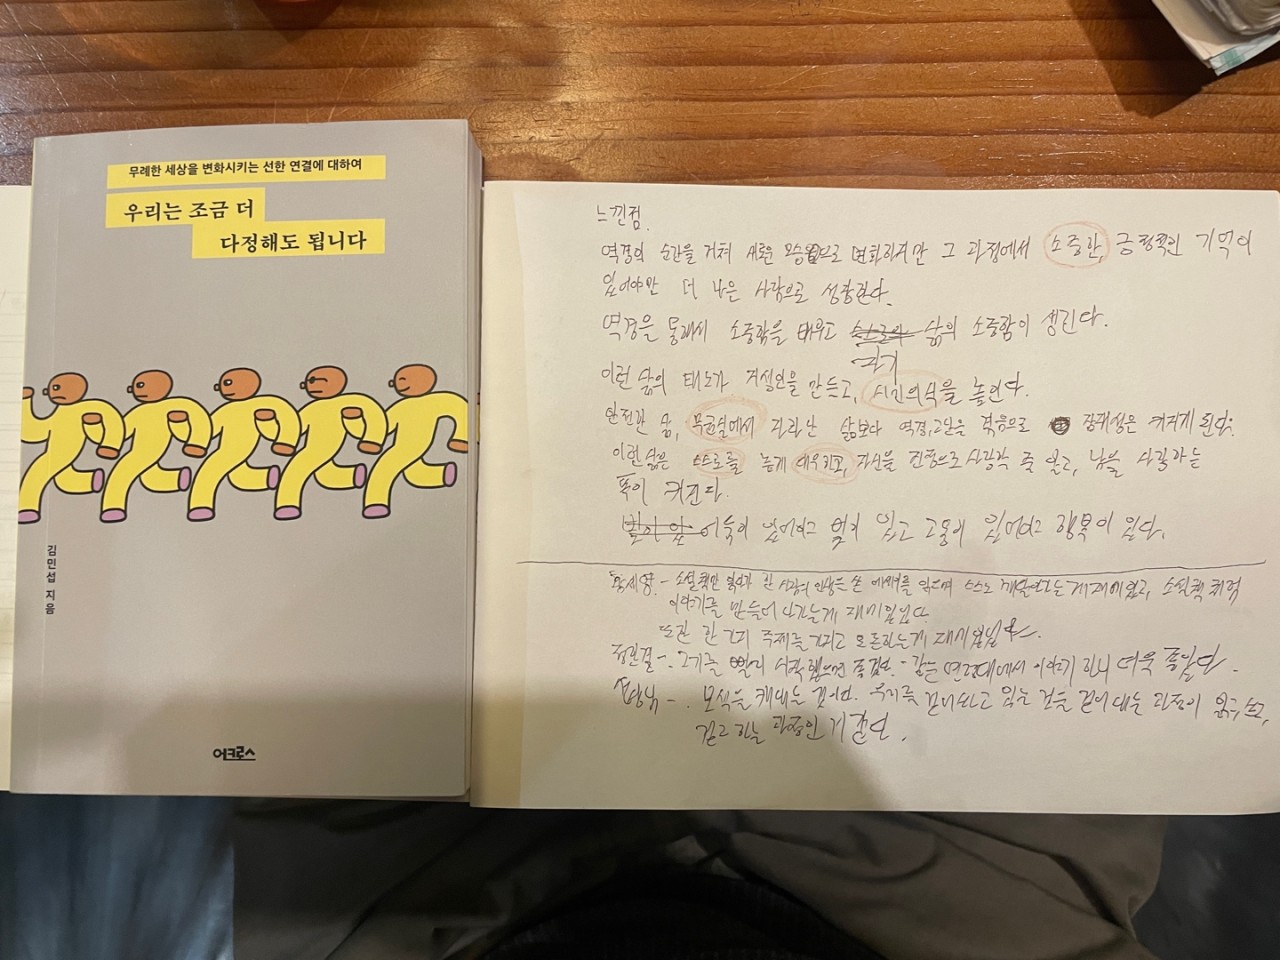 무례한 세상을 변화시키는 선한 연결에 대하여
우리는 조금 더
다정해도 됩니다
김민섭 지음
어크로스
느낀점.
역경의 순간을 거쳐 새로운 모습으로 변화하지만 그 과정에서 소중한, 긍정적인 기억이
있어야만 더 나은 사람으로 성장한다.
역경을 통해서 소중함을 배우고 삶의 소중함이 생긴다.
이런 삶의 태도가 지성인을 만들고, 시민의식을 높인다.
안전한 삶, 무균실에서 자라난 삶보다 역경,고난을 겪음으로 잠재성은 커지게 된다.
이런 삶은 스스로를 높게 대우하고, 자신을 진정으로 사랑할 줄 알고, 남을 사랑하는
폭이 커진다.
어둠이 있어야 빛이 있고 고통이 있어야 행복이 있다.
소설책만 읽다가 한 사람의 인생을 쓴 에세이를 읽으며 스스로 재미있고, 소설책처럼
이야기를 만들어 나가는게 재미있었다.
또한 한 가지 주제를 가지고 토론하는게 재미있었다.
- 같은 연령대에서 이야기 하니 더욱 좋았다.
- 모식을 깨내는 것이다. 우리를 읽는 것을 과정이 읽고, 쓰고,
말고 하는 과정인거 같다.